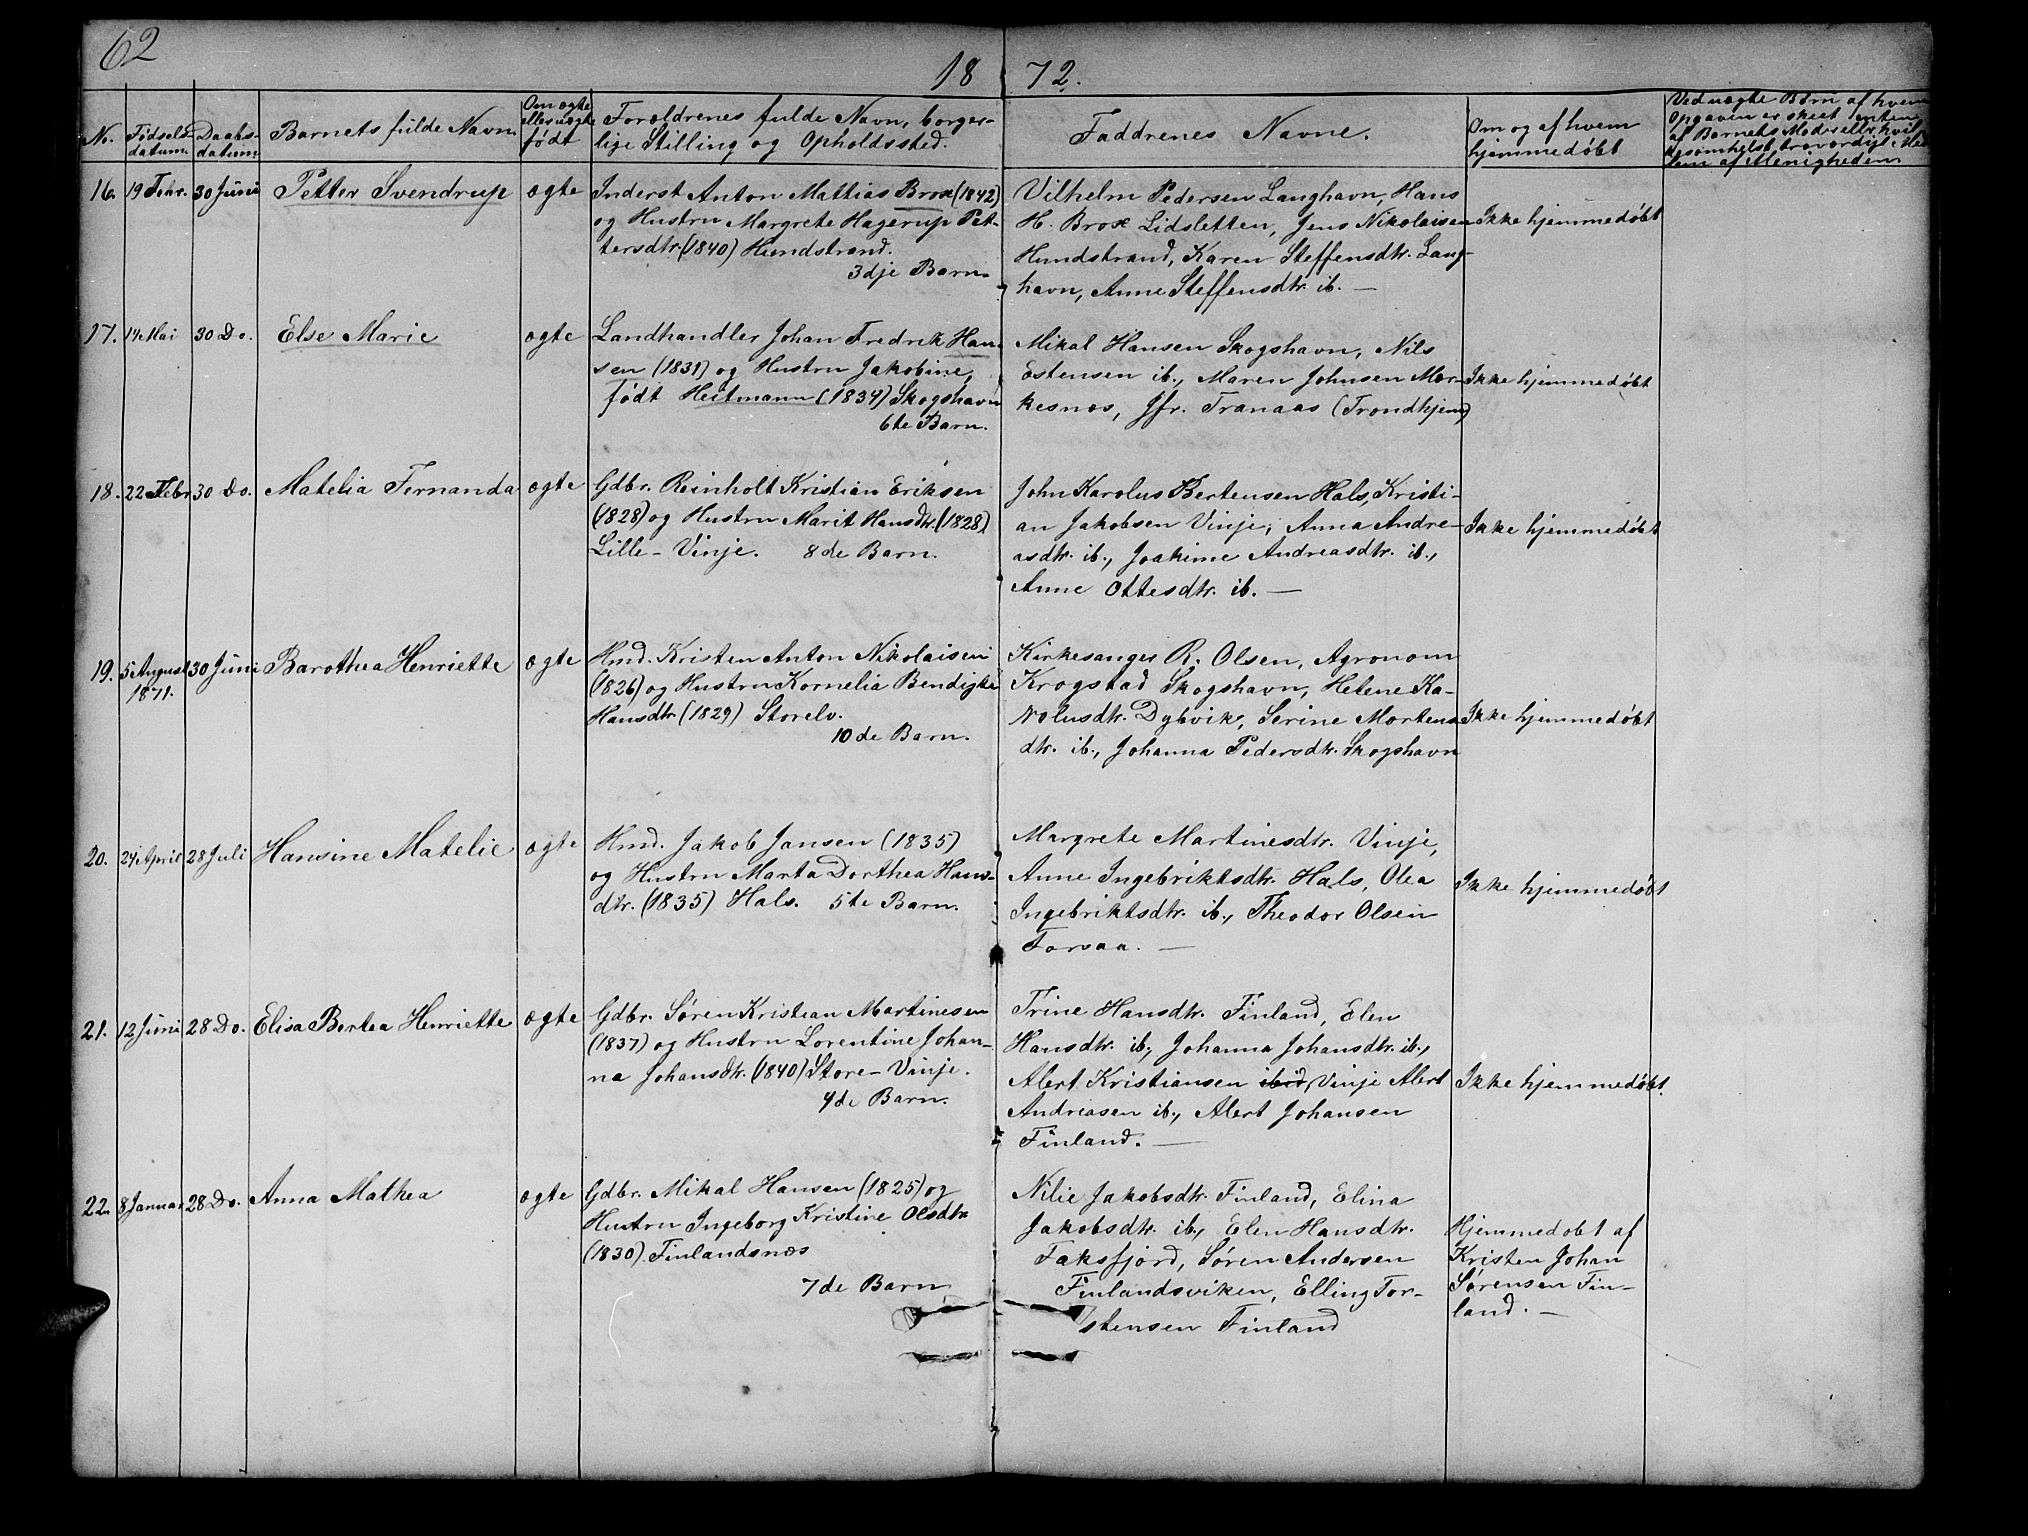 62
18 72.
No.
Fødsels-
datum.
Daabs-
datum
Barnets fulde Navn.
Om ægte
eller uægte
født
Forældrenes fulde Navn, borger-
lige Stilling og Opholdssted.
Faddrenes Navne.
Om og af hvem
hjemmedøbt
Ved uægte Børn af hvem
Opgaven er skeet enten
af Barnets Moder eller hvil
af Menigheden
16. 19 Febr. 30 Juni Petter Svendrup ægte
Inderst Anton Mattias Brox (1842)
og Hustru Margrete Hagerup Pet-
tersdtr. (1840) Hundstrand.
3dje Barn.
Vilhelm Pedersen Langhavn, Hans
H. Brox Lidsletten, Jens Nikolaisen
Hundstrand, Karen Steffensdtr. Lang-
havn, Anne Steffensdtr. ib. —
Ikke hjemmedøbt
17. 14 Mai 30 Do. Else Marie ægte
Landhandler Johan Fredrik Han-
sen (1831) og Hustru Jakobine,
født Heitmann (1834) Skogshavn
6te Barn.
Mikal Hansen Skogshavn, Nils
Estensen ib., Maren Johnsen Mor-
kesnæs, Jfr. Tranaas (Trondhjem)
Ikke hjemmedøbt
18. 22 Febr 30 Do. Matelia Fernanda ægte
Gdbr. Reinholt Kristian Eriksen
(1828) og Hustru Marit Hansdtr. (1828)
Lille-Vinje. 8de Barn.
John Karolus Bertensen Hals, Kristi-
an Jakobsen Vinje, Anna Andre-
asdtr. ib., Joakime Andreasdtr. ib.,
Anne Ottesdtr. ib. —
Ikke hjemmedøbt
19. 5 August 30 Juni Barothea Henriette ægte
1871.
Hmd. Kristen Anton Nikolaisen
(1826) og Hustru Kornelia Bendigte
Hansdtr. (1829) Storelv.
10de Barn.
Kirkesanger R. Olsen, Agronom
Krogstad Skogshavn, Helene Ka-
rolusdtr. Dybvik, Serine Mortens-
dtr. ib., Johanna Pedersdtr. Skogshavn
Ikke hjemmedøbt
20. 24 April 28 Juli Hansine Matelie ægte
Hmd. Jakob Jansen (1835)
og Hustru Marta Dorthea Hans-
dtr. (1835) Hals. 5te Barn.
Margrete Martinesdtr. Vinje,
Anne Ingebriktsdtr. Hals, Olea
Ingebriktsdtr. ib., Theodor Olsen
Forsaa. —
Ikke hjemmedøbt
21. 12 Juni 28 Do. Elisa Bertea Henriette ægte
Gdbr. Søren Kristian Martinesen
(1837) og Hustru Lorentine Johan-
na Johansdtr. (1840) Store-Vinje.
4de Barn.
Trine Hansdtr. Finland, Elen
Hansdtr. ib., Johanna Johansdtr. ib.,
Alert Kristiansen ibid, Vinje Alert
Andreasen ib., Alert Johansen
Finland. —
Ikke hjemmedøbt.
22. 8 Januar 28 Do. Anna Mathea ægte
Gdbr. Mikal Hansen (1825) og
Hustru Ingeborg Kristine Olsdtr
(1830) Finlandsnæs
7de Barn
Nilie Jakobsdtr. Finland, Elina
Jakobsdtr. ib., Elen Hansdtr.
Faksfjord, Søren Andersen
Finlandsviken, Elling Tor-
stensen Finland
Hjemmedøbt af
Kristen Johan
Sørensen Fin-
land. —